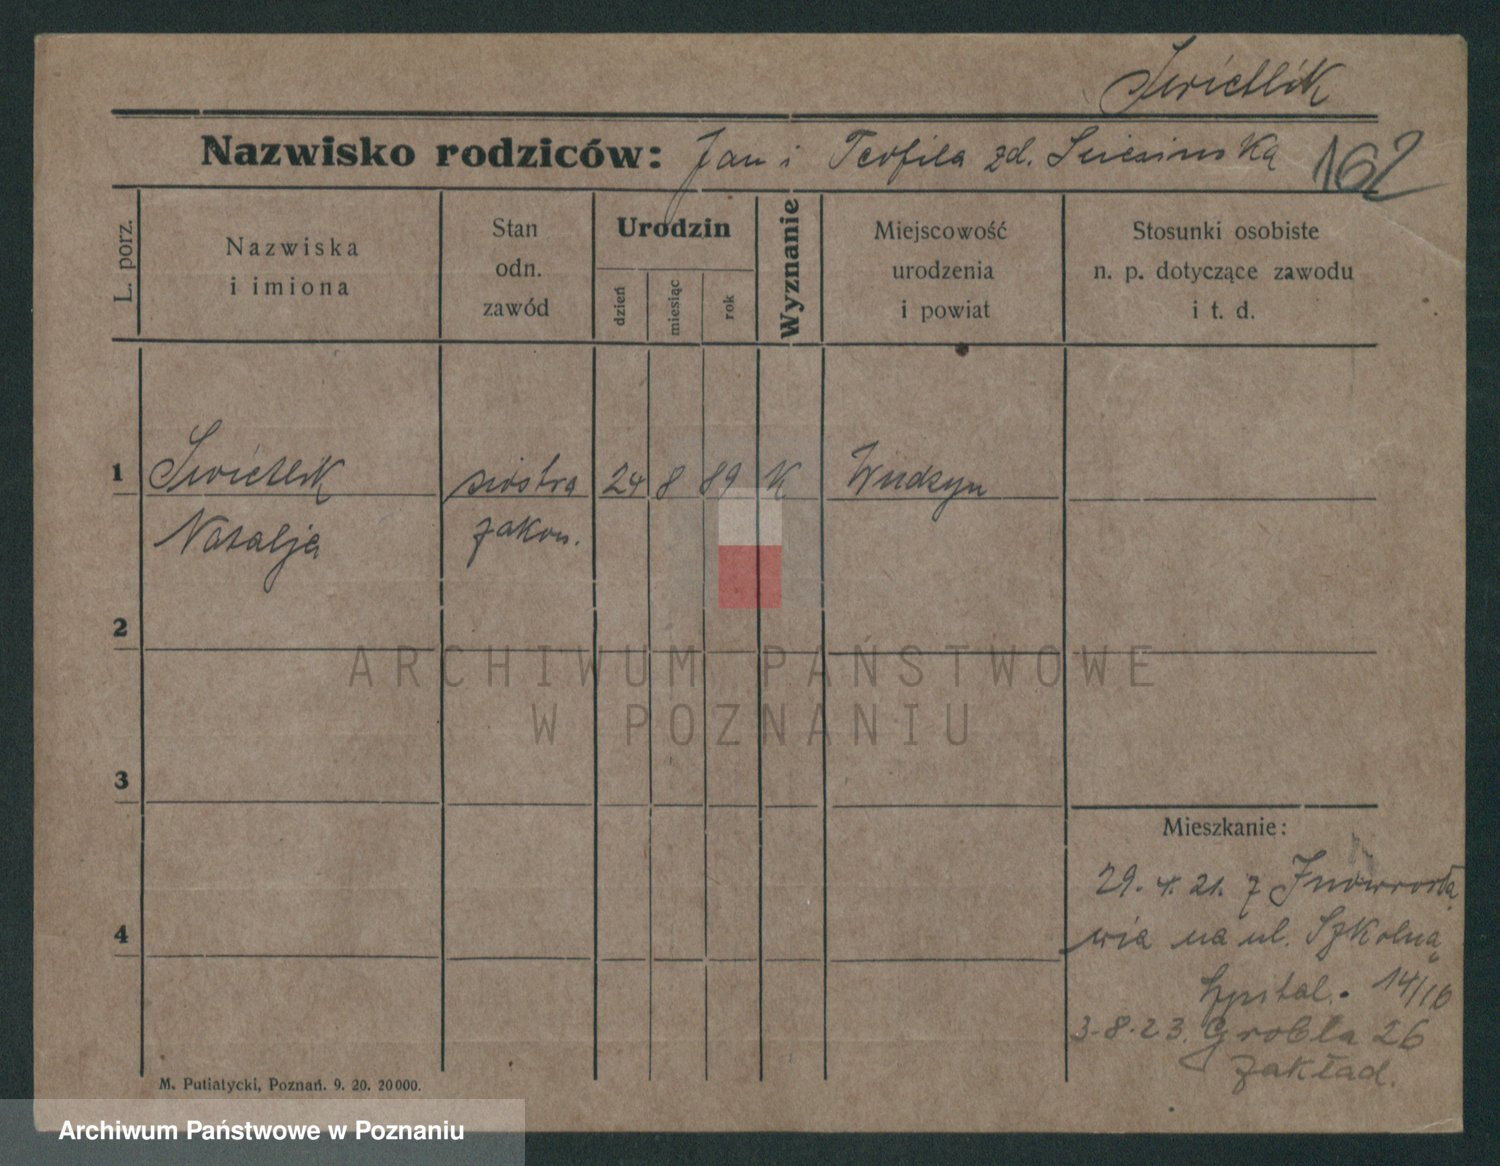 Swietlik
Nazwisko rodziców: Jan i Teofila zd. 162
L. porz.
Nazwiska
i imiona
Stan
odn.
zawód
Urodzin
dzień
miesiąc
rok
Wyznanie
Miejscowość
urodzenia
i powiat
Stosunki osobiste
n. p. dotyczące zawodu
i t. d.
1 Swietlik siostra 24 8 89 K Wudzyn
Natalja zakon.
2
3
4
Mieszkanie:
29. 4. 21. z Inowrocła
wia na ul. Szkolną
szpital. 14/16
3-8-23. Grobla 26
zakład.
M. Putiatycki, Poznań. 9. 20. 20000.
ARCHIWUM PAŃSTWOWE
W POZNANIU
Archiwum Państwowe w Poznaniu